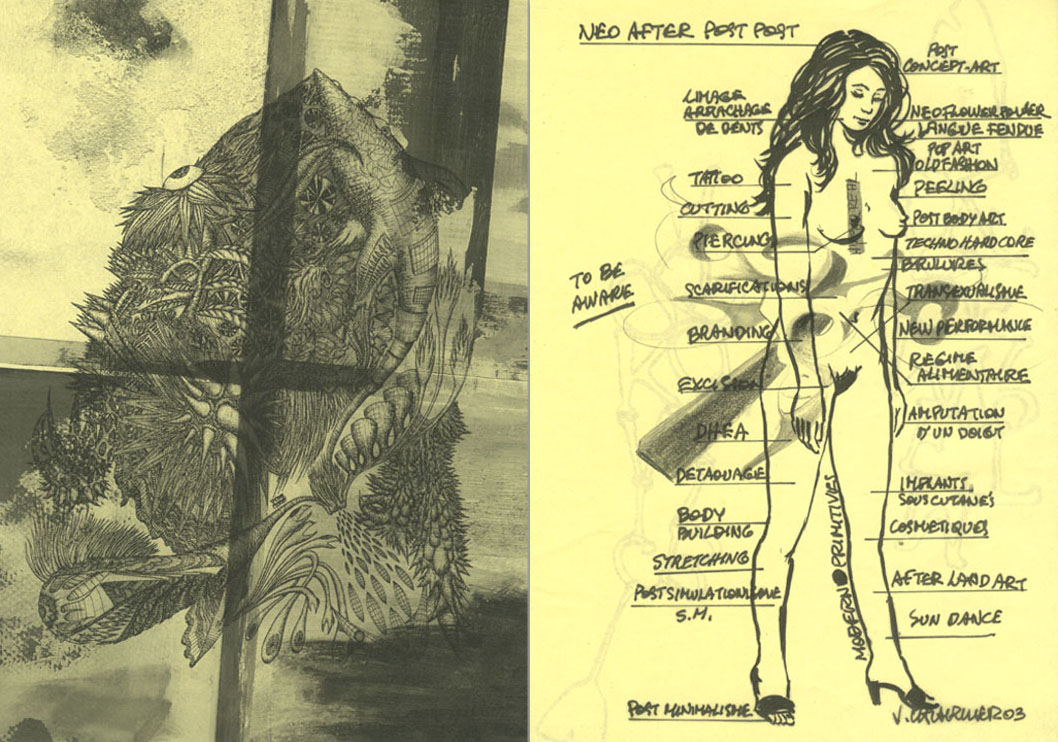 NEO AFTER POST POST
POST
CONCEPT-ART
LIMAGE
ARRACHAGE
DE DENTS
NEOFLOWER POWER
LANGUE FENDUE
POP ART
OLD FASHION
TATOO
PEELING
CUTTING
POST BODY ART
PIERCING
TECHNO HARDCORE
BRULURES
TO BE
AWARE
SCARIFICATIONS
TRANSEXUALISME
BRANDING
NEW PERFORMANCE
REGIME
ALIMENTAIRE
EXCISION
AMPUTATION
D'UN DOIGT
DHEA
DETAQUAGE
IMPLANTS
SOUS CUTANES
BODY
BUILDING
COSMETIQUES
STRETCHING
MODERN PRIMITIVES
AFTER LAND ART
POST SIMULATIONISME
S.M.
SUN DANCE
POST MINIMALISME
03